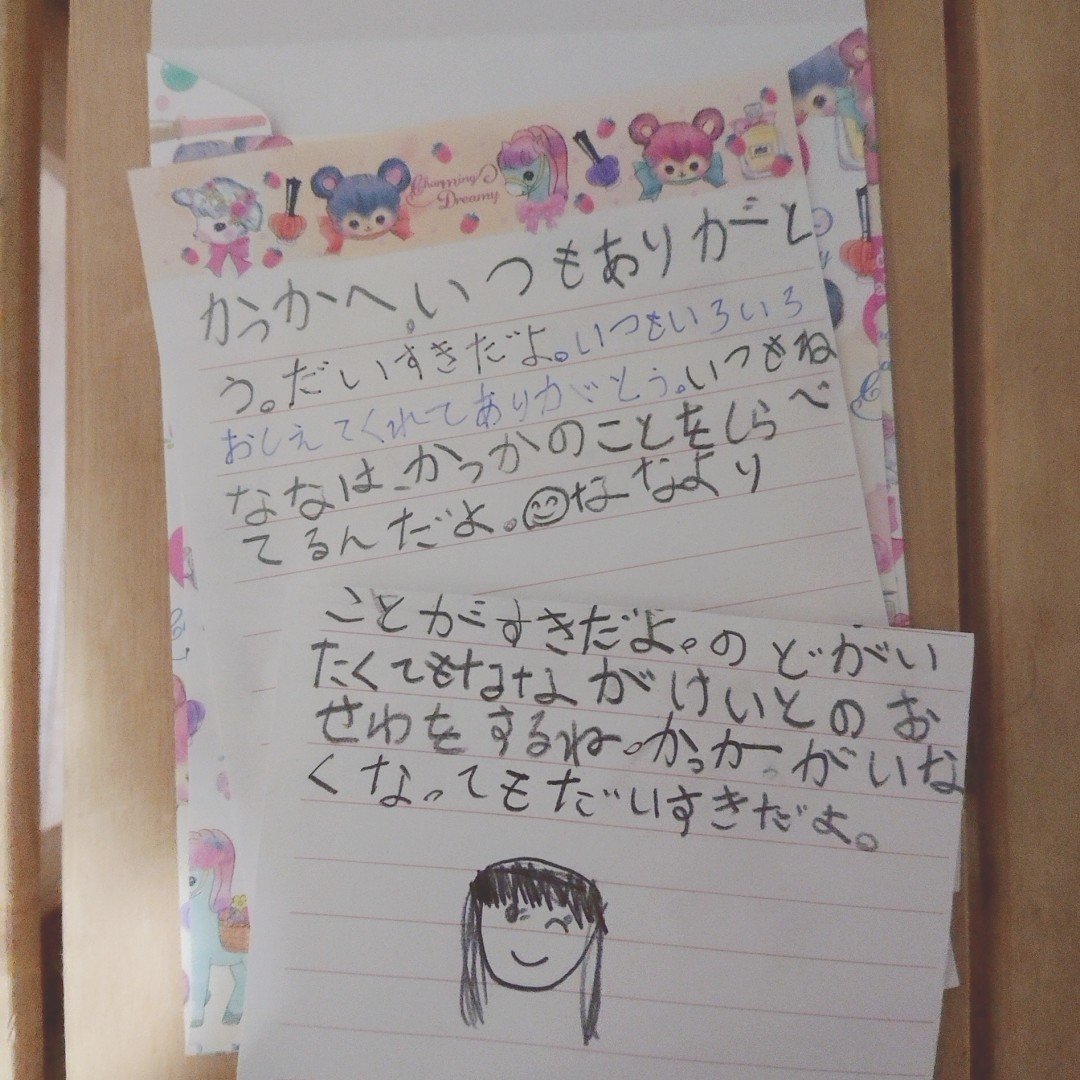 Charming
Dreamy
かっかへ。いつもありがと
う。だいすきだよ。いつもいろいろ
おしえてくれてありがとう。いつもね
ななは、かっかのことをしらべ
てるんだよ。ななより
ことがすきだよ。のどがい
たくてもなながけいとのお
せわをするね。かっかがいな
くなってもだいすきだよ。